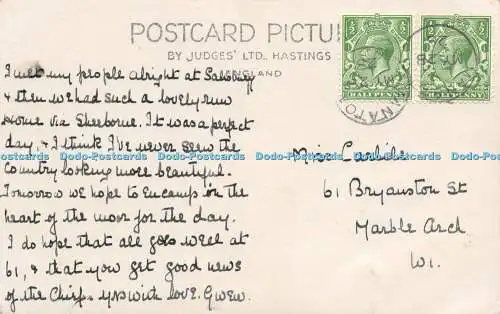 POSTCARD PICTU
BY JUDGES' LTD., HASTINGS
ENGLAND
I met my people alright at Salisbury
& then we had such a lovely run
home via Sherborne. It was a perfect
day, & I think I've never seen the
country looking more beautiful.
Tomorrow we hope to encamp in the
heart of the moor for the day.
I do hope that all goes well at
61, & that you get good news
of the Chief. Yrs with love. Gwen.
HALFPENNY
HALFPENNY
Miss Carlile
61 Bryanston St
Marble Arch
W1.
Dodo-Postcards Dodo-Postcards Dodo-Postcards Dodo-Postcards Dodo-Postcards Dodo-Postcards